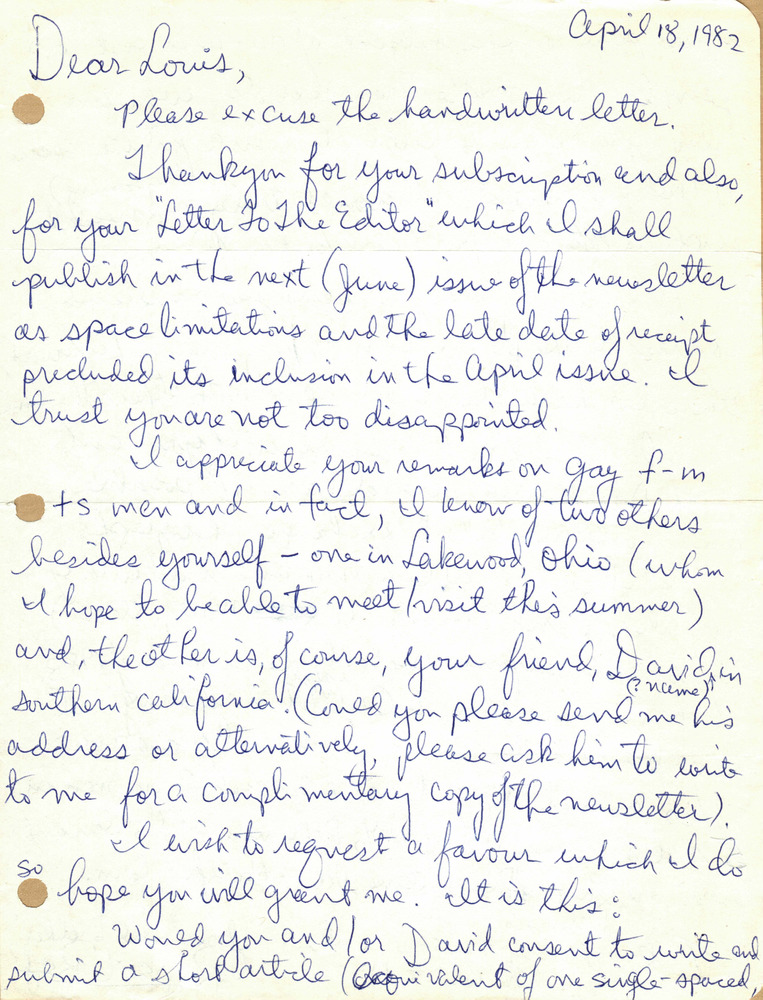 April 18, 1982
Dear Louis,
Please excuse the handwritten letter.
Thankyou for your subscription and also,
for your "Letter To The Editor" which I shall
publish in the next (June) issue of the newsletter
as space limitations and the late date of receipt
precluded its inclusion in the April issue. I
trust you are not too disappointed.
I appreciate your remarks on gay f-m
ts men and in fact, I know of two others
besides yourself – one in Lakewood, Ohio (whom
I hope to be able to meet/visit this summer)
and, the other is, of course, your friend, David, in
(? name)
southern california. (Could you please send me his
address or alternatively, please ask him to write
to me for a complimentary copy of the newsletter).
I wish to request a favour which I do
so
hope you will grant me. It is this:
Would you and/or David consent to write and
submit a short article (equivalent of one single-spaced,